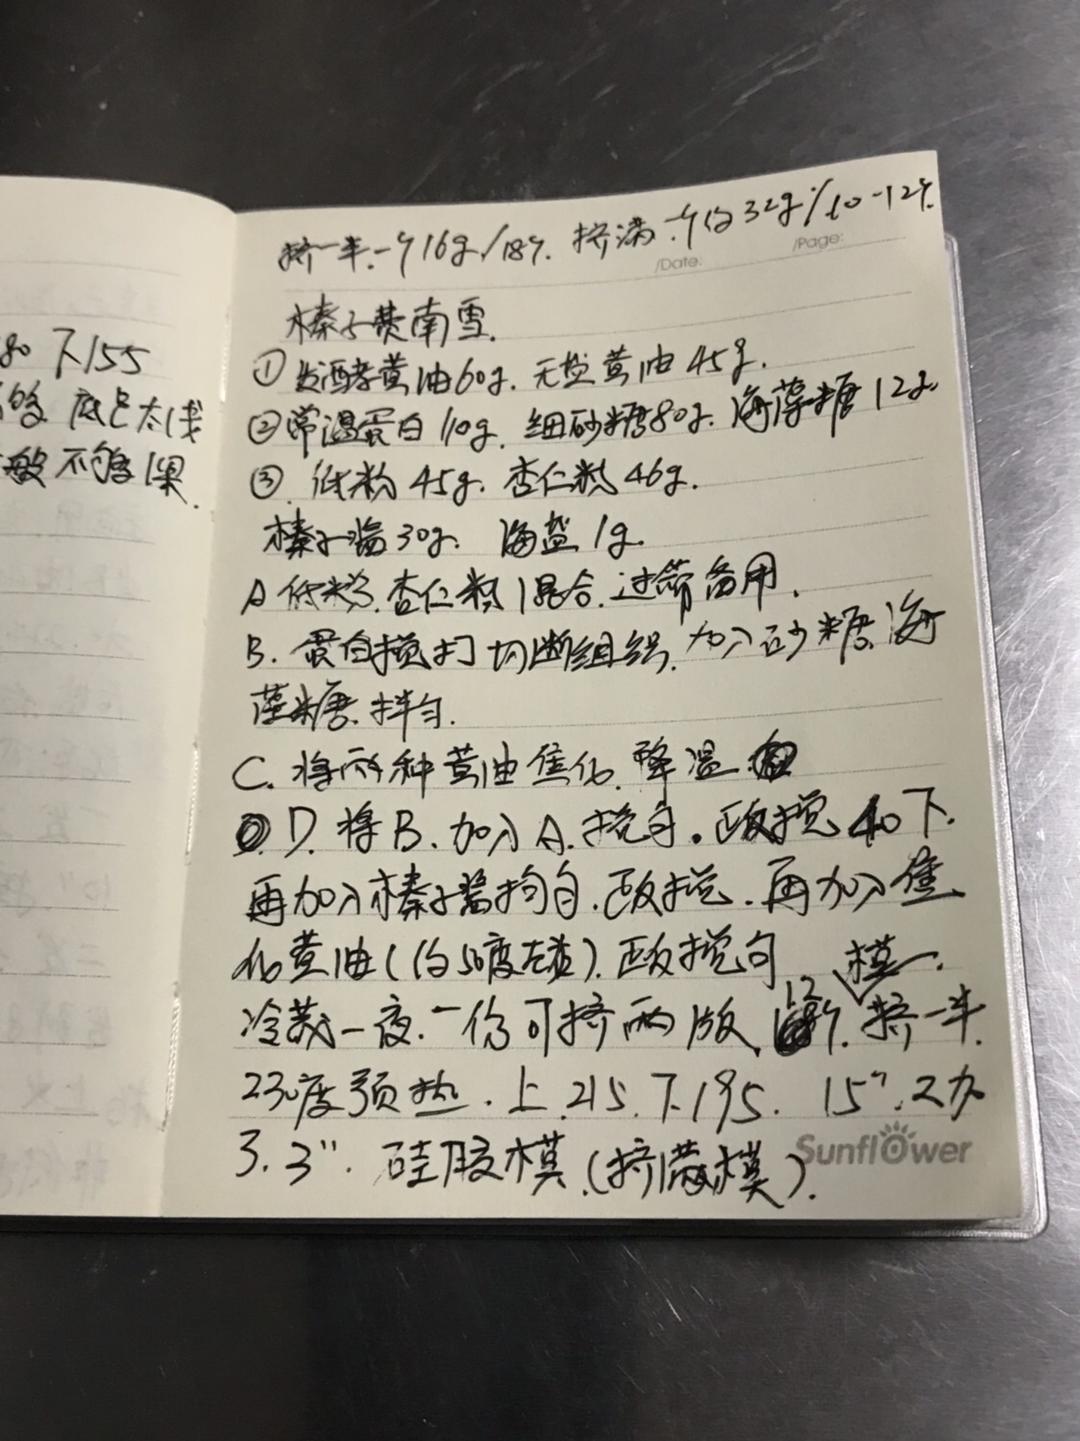 80 下155
够 底色太浅
不够
挤一半.一个16g/18个. 挤满.一个约32g/10-12个.
/Date: /Page:
榛子费南雪.
①发酵黄油60g. 无盐黄油45g.
②常温蛋白110g. 细砂糖80g. 海藻糖12g.
③. 低粉45g. 杏仁粉46g.
榛子酱30g. 海盐1g.
A 低粉. 杏仁粉混合. 过筛备用.
B. 蛋白搅打切断组织. 加入砂糖. 海
藻糖. 拌匀.
C. 将两种黄油焦化. 降温
D. 将B. 加入A. 搅匀. 画搅40下.
再加入榛子酱搅匀. 搅. 再加入焦
化黄油(约50度左右). 搅匀. 模一.
冷藏一夜. 一份可挤两版. 12个. 挤一半.
230度预热. 上.215. 下.195. 15". 又加
3. 3". 硅胶模.(挤满模).
Sunflower